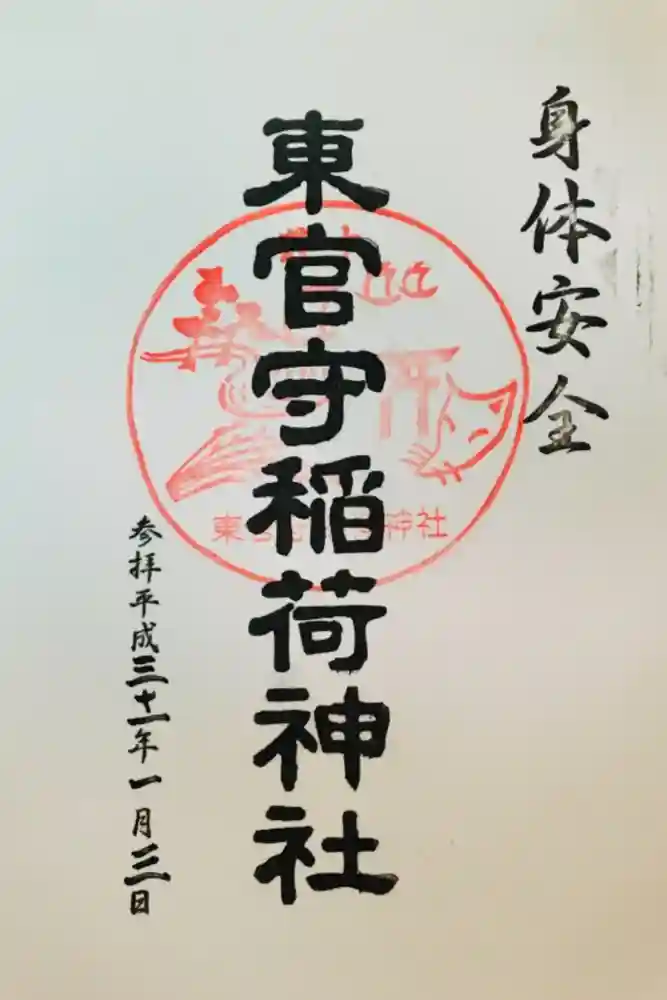 身体安全
東官守稲荷神社
参拝平成三十一年一月三日
神社